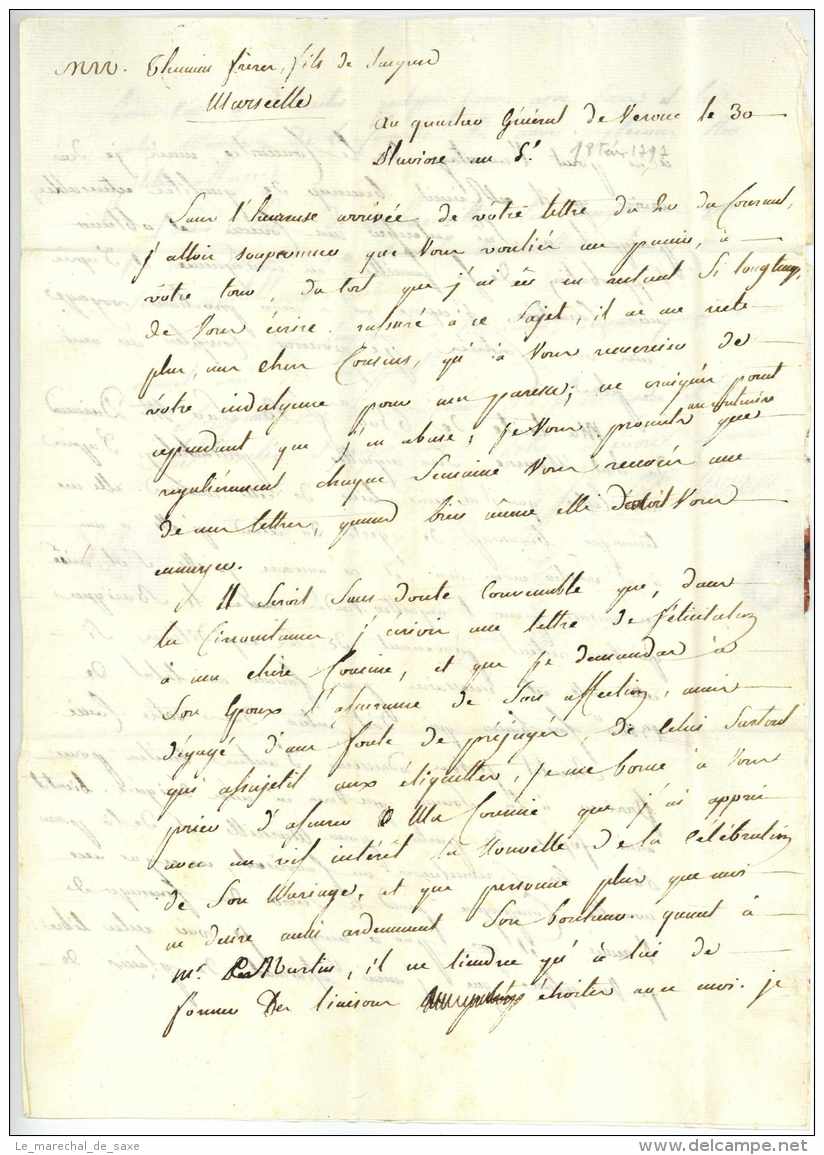 MM. Thumin frères, fils de
Marseille
Au quartier Général de Verone le 30
Pluviose an 5e. 18 Fév. 1797
Sans l'heureuse arrivée de vôtre lettre du 20 du Courant,
j'allois soupconner que Vous vouliés me punir, à
vôtre tour, du tort que j'ai eu en restant Si longtems
de Vous écrire. rassuré à ce Sujet, il ne me reste
plus, mes chers Cousins, qu'à Vous remercier de
vôtre indulgence pour ma paresse; ne craignés point
cependant que j'en abuse; je Vous promets au contraire que
regulièrement chaque Semaine Vous recevrés une
de mes lettres, quand bien même elle devroit Vous
ennuyer.
Il Seroit Sans doute Convenable que, dans
la Circonstance, j'écrivis une lettre de félicitation
à ma chère Cousine, et que je demandas à
Son Epoux l'assurance de Son affection, mais
dégagé d'une foule de préjugés, de celui Surtout
qui assujetit aux étiquettes, je me borne à Vous
prier d'assurer Ma Cousine que j'ai appris
avec un vif intérêt la Nouvelle de la Célébration
de Son Mariage, et que personne plus que moi
ne desire aussi ardemment Son bonheur. quant à
mr. Martin, il ne tiendra qu'à lui de
former Des liaisons étroites avec moi. je
Le_marechal_de_saxe
www.delcampe.net